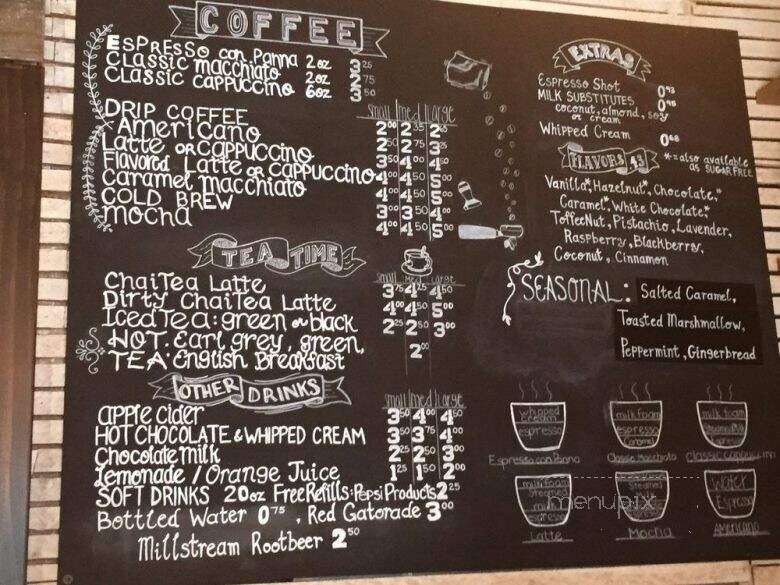 COFFEE
Espresso con Panna 2oz 3 25
Classic macchiato 2oz 2 75
Classic cappuccino 6oz 3 50
small med large
DRIP COFFEE 2 00 2 35
Americano 2 50 2 75
Latte or cappuccino 3 50 4 00 4 50
Flavored Latte or cappuccino 4 00 4 50 5 00
Caramel macchiato 4 00 4 50 5 00
COLD BREW 3 00 3 50 4 00
mocha 4 00 4 50 5 00
TEA TIME
small med large
Chai Tea Latte 3 75 4 25 4 50
Dirty Chai Tea Latte 4 00 4 50 5 00
Iced Tea: green or black 2 25 2 50 3 00
HOT Earl grey, green,
TEA: English Breakfast 2 00
OTHER DRINKS
small med large
apple cider 3 50 4 00 4 50
HOT CHOCOLATE & WHIPPED CREAM 3 50 3 75 4 00
Chocolate milk 2 25 2 50 3 00
Lemonade / Orange Juice 1 25 1 50 2 00
SOFT DRINKS 20oz Free Refills · Pepsi Products 2 25
Bottled Water 0 75, Red Gatorade 3 00
Millstream Rootbeer 2 50
EXTRAS
Espresso Shot
MILK SUBSTITUTES
coconut, almond, soy
or cream
Whipped Cream
FLAVORS
*=also available
as SUGAR FREE
Vanilla*, Hazelnut*, Chocolate,*
Caramel*, White Chocolate*,
Toffee Nut, Pistachio, Lavender,
Raspberry, Blackberry,
Coconut, Cinnamon
SEASONAL: Salted Caramel,
Toasted Marshmallow,
Peppermint, Gingerbread
whipped cream
espresso
Espresso con Panna
milk foam
espresso
Caramel
Classic Macchiato
milk foam
Steamed Milk
Espresso
Classic Cappuccino
milk foam
Steamed
milk
espresso
Latte
Steamed
Mocha
Water
Espresso
Americano
menupix